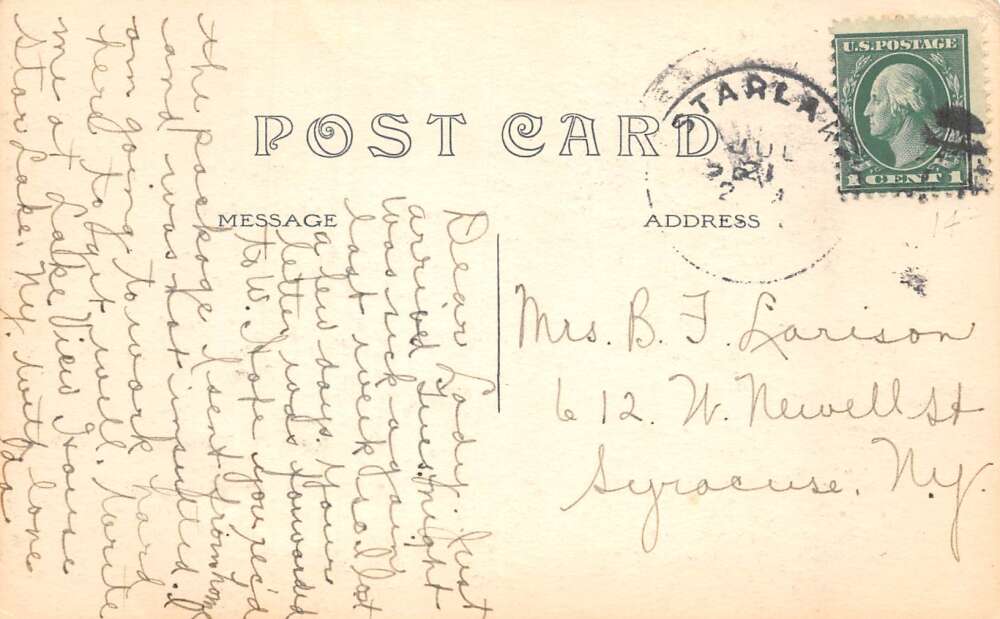 POST CARD
MESSAGE
ADDRESS
U.S. POSTAGE
1 CENT 1
STARLAK
JUL
Mrs. B. F. Larison
612. W. Newell St
Syracuse, Ny.
Dear Lady. Just
arrived Tues. night
was sick again
last week & so lost
a few days. Your
letter was forwarded
to W. I hope you rec'd
the package I sent from home
and was not insulted. I
am going to work hard
here to get well. Write
me at Lake View House
Star Lake. Ny. with love